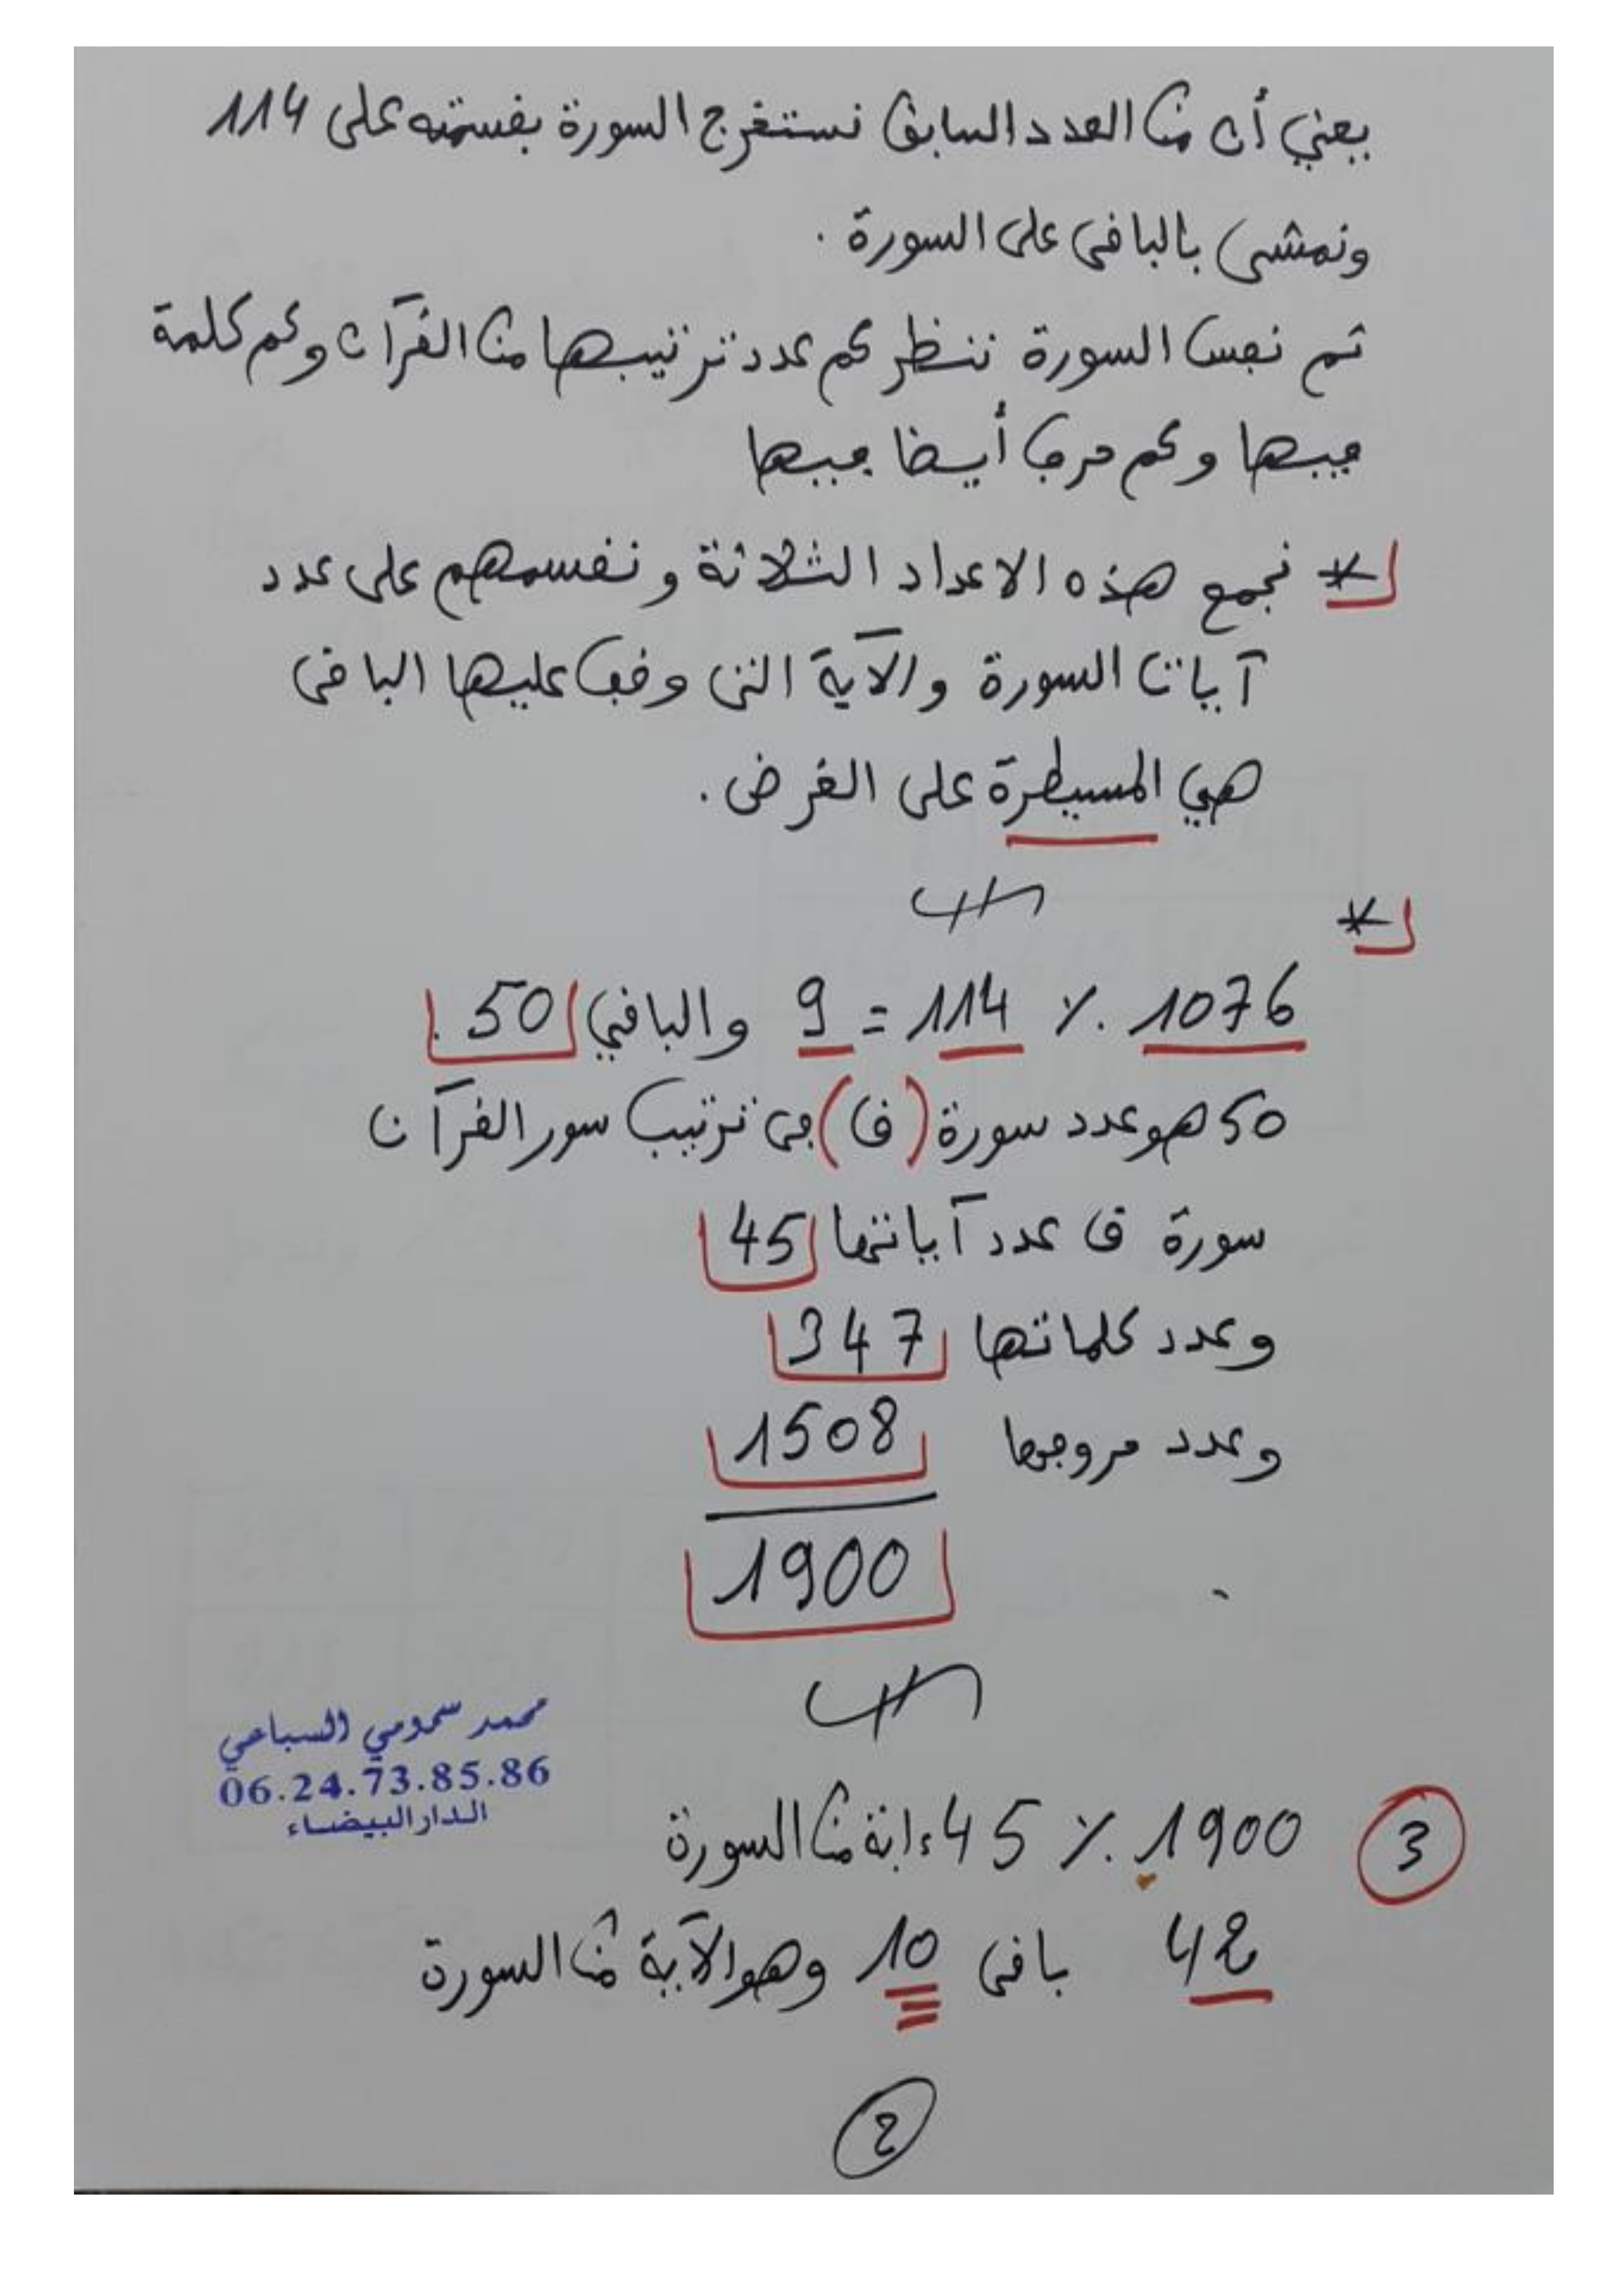 يعني أن من العدد السابق نستخرج السورة بقسمته على 114
ونمشي بالباقي على السورة .
ثم نفس السورة ننظر كم عدد ترتيبها من القرآن وكم كلمة
فيها وكم حرف أيضا فيها
* نجمع هذه الاعداد الثلاثة ونقسمهم على عدد
آيات السورة والآية التي وقف عليها الباقي
هي المسيطرة على الغرض .
*
1076 ٪ 114 = 9 والباقي 50
50 هو عدد سورة (ق) في ترتيب سور القرآن
سورة ق عدد آياتها 45
وعدد كلماتها 347
وعدد حروفها 1508
1900
محمد سمومي السباعي
06.24.73.85.86
الدار البيضاء
3 1900 ٪ 45 ءاية من السورة
42 باقي 10 وهو الآية من السورة
2